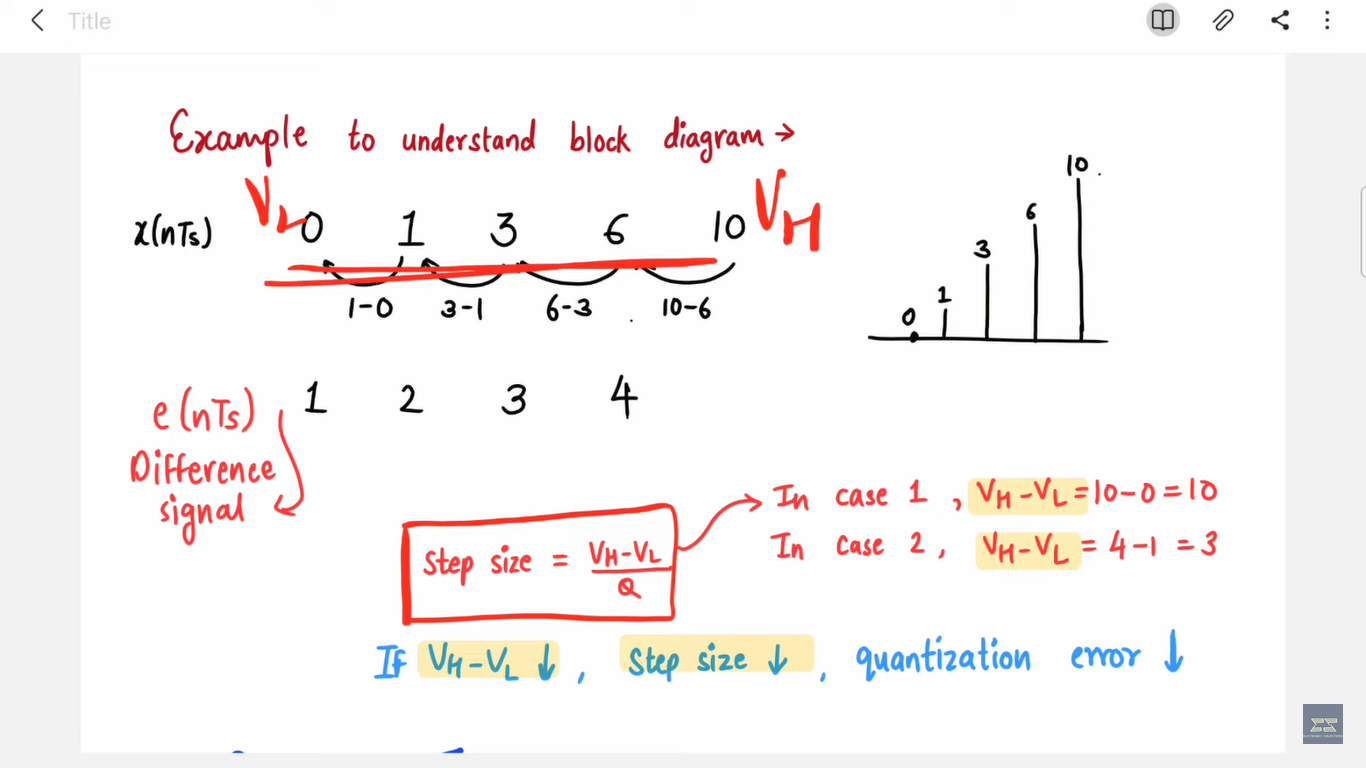 Title
Example to understand block diagram →
x(nTs) 0 1 3 6 10
VL VH
1-0 3-1 6-3 10-6
0 1 3 6 10
e(nTs) 1 2 3 4
Difference
signal
Step size = VH-VL / Q
In case 1, VH-VL = 10-0 = 10
In case 2, VH-VL = 4-1 = 3
If VH-VL ↓, Step size ↓, quantization error ↓